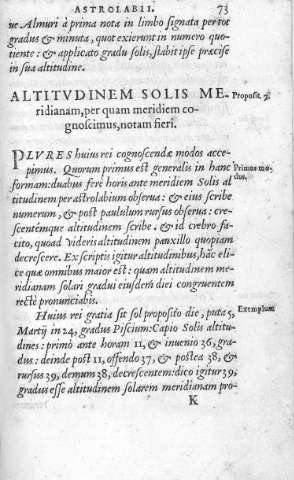 ASTROLABII. 73
ue Almuri à prima nota in limbo signata per tot
gradus & minuta, quot exierunt in numero quo-
tiente: & applicato gradu solis, stabit ipse præcise
in sua altitudine.
ALTITVDINEM SOLIS ME- Proposit. 9.
ridianam, per quam meridiem co-
gnoscimus, notam fieri.
PLVRES huius rei cognoscendæ modos acce-
pimus. Quorum primus est generalis in hanc Primus mo-
formam: duabus ferè horis ante meridiem Solis al dus.
titudinem per astrolabium obserua: & eius scribe
numerum, & post paululum rursus obserua: cre-
scentémque altitudinem scribe. & id crebro fa-
cito, quoad videris altitudinem pauxillo quopiam
decrescere. Ex scriptis igitur altitudinibus, hác eli-
ce quæ omnibus maior est: quam altitudinem me-
ridianam solari gradui eiusdem diei congruentem
rectè pronunciabis.
Huius rei gratia sit sol proposito die, puta 5, Exemplum
Martij in 24, gradus Piscium: Capio Solis altitu-
dines: primò ante horam 11, & inuenio 36, gra-
dus: deinde post 11, offendo 37, & postea 38, &
rursus 39, demum 38, decrescentem: dico igitur 39,
gradus esse altitudinem solarem meridianam pro-
K